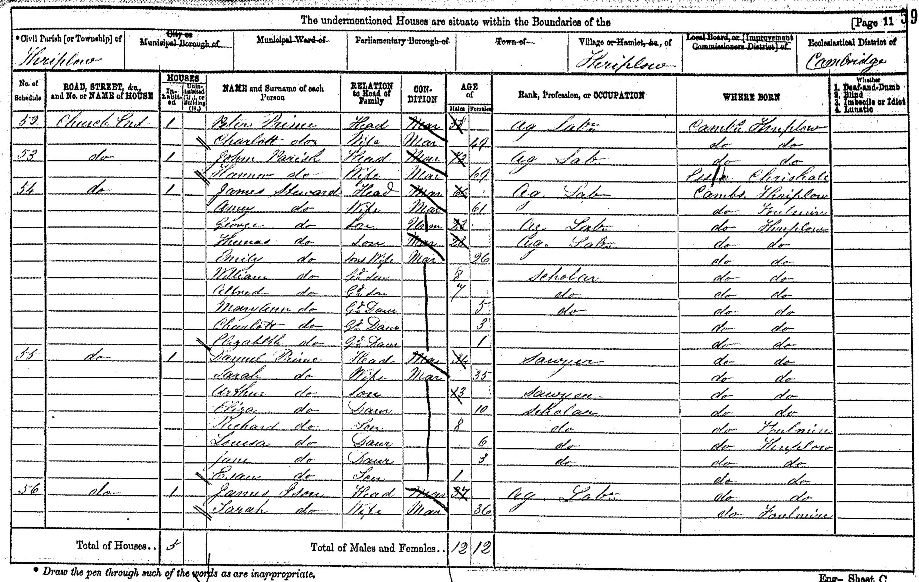 The undermentioned Houses are situate within the Boundaries of the [Page 11 39
*Civil Parish [or Township] of City or Municipal Borough of Municipal Ward of Parliamentary Borough of Town of Village or Hamlet, &c., of Local Board, or [Improvement Commissioners District] of Ecclesiastical District of
Thriplow Thriplow Cambridge
No. of Schedule ROAD, STREET, &c., and No. or NAME of HOUSE HOUSES Inhabited Uninhabited (U.), or Building (B.) NAME and Surname of each Person RELATION to Head of Family CONDITION AGE of Males Females Rank, Profession, or OCCUPATION WHERE BORN Whether 1. Deaf-and-Dumb 2. Blind 3. Imbecile or Idiot 4. Lunatic
52 Church End 1 Peter Prime Head Mar Ag Labr Cambs Thriplow
Charlott do Wife Mar 49 do do
53 do 1 John Parish Head Mar 72 Ag Lab do do
Hannah do Wife Mar 69 Essex Chrishall
54 do 1 James Steward Head Mar 66 Ag Lab Cambs Thriplow
Amey do Wife Mar 61 do Foulmire
George do Son Unm 23 Ag Labr do Thriplow
Thomas do Son Mar Ag Labr do do
Emily do Sons Wife Mar 26 do do
William do Gd Son 8 Scholar do do
Alfred do Gd Son 7 do do do
Mary Ann do Gd Daur 5 do do do
Charlott do Gd Daur 3 do do
Elizabeth do Gd Daur 1 do do
55 do 1 Daniel Prime Head Mar Sawyer do do
Sarah do Wife Mar 35 do do
Arthur do Son 13 Sawyer do do
Eliza do Daur 10 Scholar do do
Richard do Son 8 do do Foulmire
Louisa do Daur 6 do do Thriplow
Jane do Daur 3 do do do
do Son 1 do do
56 do 1 James Head Mar 37 Ag Labr do do
Sarah do Wife Mar 36 do Foulmire
Total of Houses.. 5 Total of Males and Females.. 12 12
* Draw the pen through such of the words as are inappropriate.
Eng—Sheet C.